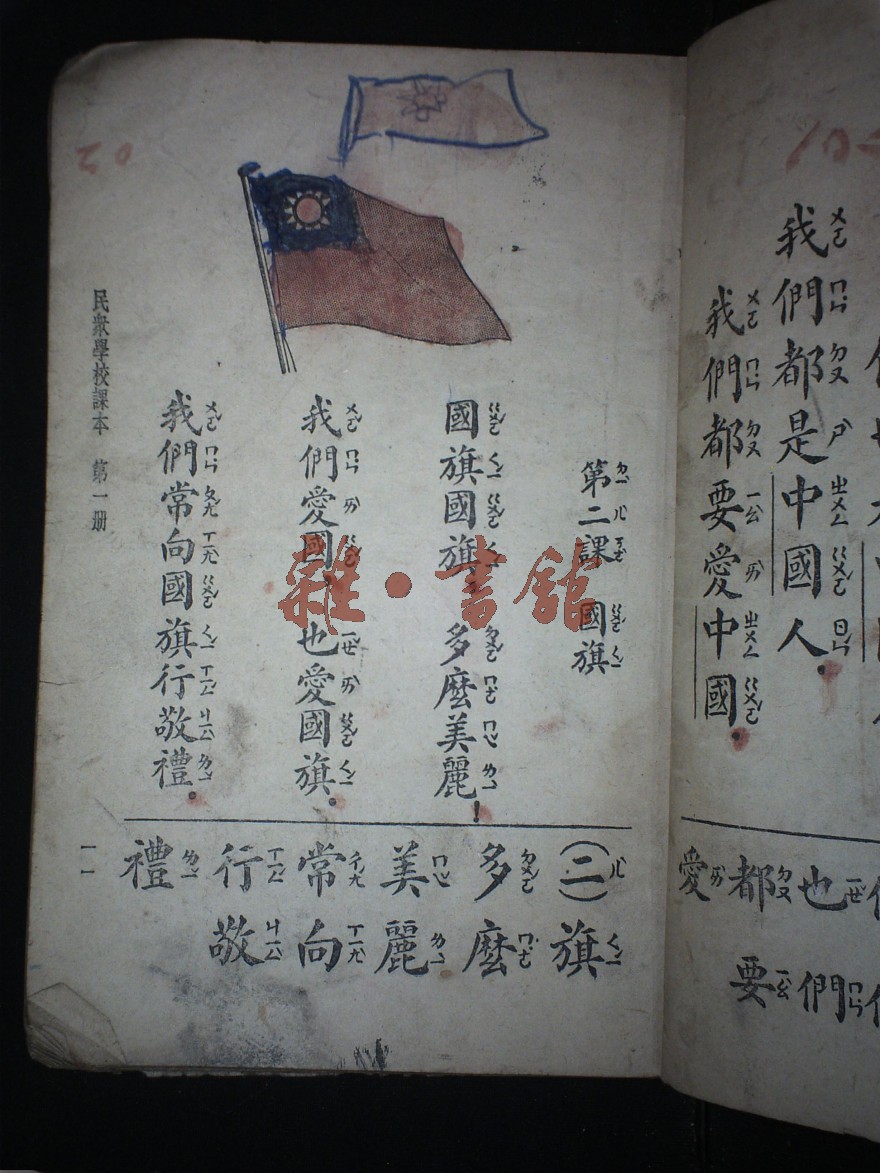 我們都是中國人。
我們都要愛中國。
也
都要
們
愛
第二課 國旗
國旗國旗，多麼美麗！
我們愛國，也愛國旗。
我們常向國旗行敬禮。
(二)旗
多麼
美麗
常向
行敬
禮
民衆學校課本 第一册
一一
20
雜·書館